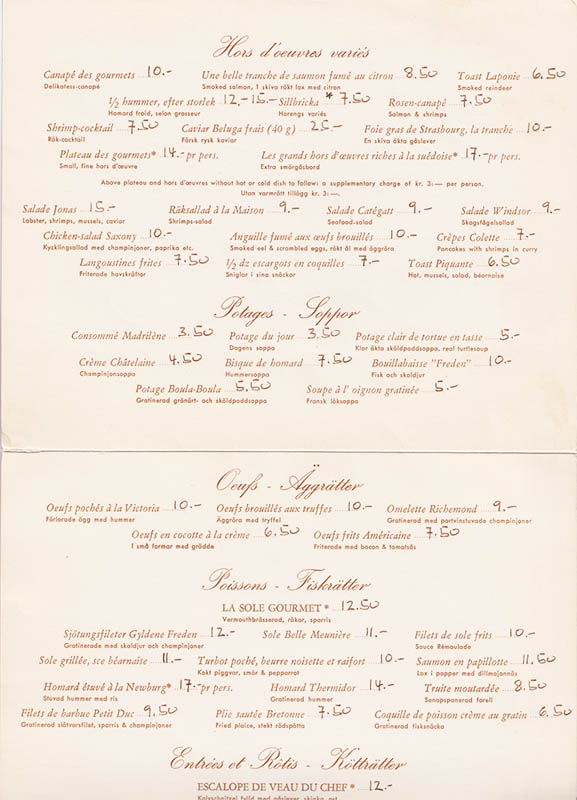 Hors d'oeuvres variés
Canapé des gourmets 10.- Une belle tranche de saumon fumé au citron 8.50 Toast Laponie 6.50
Delikatess-canapé Smoked salmon, 1 skiva rökt lax med citron Smoked reindeer
½ hummer, efter storlek 12.-15.- Sillbricka * 7.50 Rosen-canapé 7.50
Homard froid, selon grosseur Harengs variés Salmon & shrimps
Shrimp-cocktail 7.50 Caviar Beluga frais (40 g) 25.- Foie gras de Strasbourg, la tranche 10.-
Räk-cocktail Färsk rysk kaviar En skiva äkta gåslever
Plateau des gourmets* 14.- pr pers. Les grands hors d'œuvres riches à la suédoise* 17.- pr pers.
Small, fine hors d'œuvre Extra smörgåsbord
Above plateau and hors d'œuvres without hot or cold dish to follow: a supplementary charge of kr. 3:— per person.
Utan varmrätt tillägg kr. 3:—.
Salade Jonas 15.- Räksallad à la Maison 9.- Salade Catégatt 9.- Salade Windsor 9.-
Lobster, shrimps, mussels, caviar Shrimps-salad Seafood-salad Skogsfågelsallad
Chicken-salad Saxony 10.- Anguille fumé aux œufs brouillés 10.- Crèpes Colette 7.-
Kycklingsallad med champinjoner, paprika etc. Smoked eel & scrambled eggs, rökt ål med äggröra Pancakes with shrimps in curry
Langoustines frites 7.50 ½ dz escargots en coquilles 7.- Toast Piquante 6.50
Friterade havskräftor Sniglor i sina snäckor Hot, mussels, salad, béarnaise
Potages - Soppor
Consommé Madrilène 3.50 Potage du jour 3.50 Potage clair de tortue en tasse 5.-
Dagens soppa Klar äkta sköldpaddsoppa, real turtlesoup
Crème Châtelaine 4.50 Bisque de homard 7.50 Bouillabaisse "Freden" 10.-
Champinjonsoppa Hummersoppa Fisk och skaldjur
Potage Boula-Boula 5.50 Soupe à l' oignon gratinée 5.-
Gratinerad grönärt- och sköldpaddsoppa Fransk löksoppa
Oeufs - Äggrätter
Oeufs pochés à la Victoria 10.- Oeufs brouillés aux truffes 10.- Omelette Richemond 9.-
Förlorade ägg med hummer Äggröra med tryffel Gratinerad med portvinstuvade champinjoner
Oeufs en cocotte à la crème 6.50 Oeufs frits Américaine 7.50
I små formar med grädde Friterade med bacon & tomatsås
Poissons - Fiskrätter
LA SOLE GOURMET * 12.50
Vermouthbrässerad, räkor, sparris
Sjötungsfileter Gyldene Freden 12.- Sole Belle Meunière 11.- Filets de sole frits 10.-
Gratinerade med skaldjur och champinjoner Sauce Rémoulade
Sole grillée, sce béarnaise 11.- Turbot poché, beurre noisette et raifort 10.- Saumon en papillotte 11.50
Kokt piggvar, smör & pepparrot Lax i papper med dillmajonnäs
Homard étuvé à la Newburg* 17.- pr pers. Homard Thermidor 14.- Truite moutardée 8.50
Stuvad hummer med ris Gratinerad hummer Senapspanerad forell
Filets de barbue Petit Duc 9.50 Plie sautée Bretonne 7.50 Coquille de poisson crème au gratin 6.50
Gratinerad slätvarsfilet, sparris & champinjoner Fried plaice, stekt rödspätta Gratinerad fisksnäcka
Entrées et Rôtis - Kötträtter
ESCALOPE DE VEAU DU CHEF * 12.-
Kalvschnitzel fylld med gåslever, skinka, ost